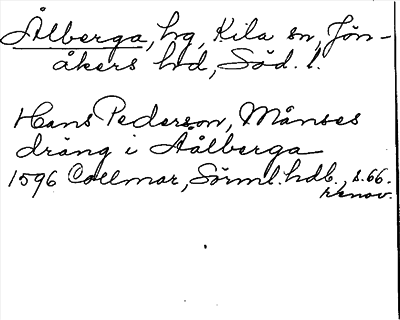 Ålberga, hg, Kila sn, Jön-
åkers hd, Söd. l.
Hans Pederson, Månses
dräng i Aålberga
1596 Collmar, Sörml. hdb., s. 66.
renov.